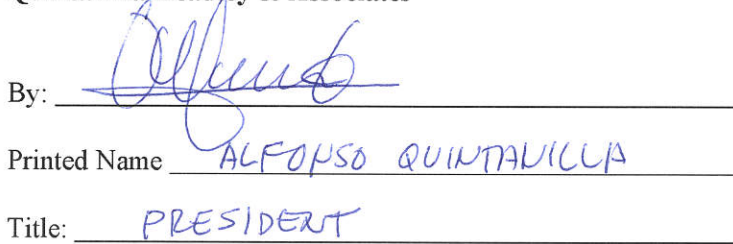 & Associates
By:
Printed Name ALFONSO QUINTANILLA
Title: PRESIDENT